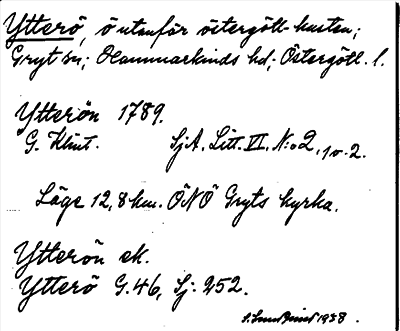 Ytterö, ö utanför östergöt-kusten;
Gryt sn; Hammarkinds hd; Östergötl. l.
Ytterön 1789.
G. Klint. SjA. Litt. VI. N:o 2, 1 v. 2.
Läge 12,8 km. ÖNÖ Gryts kyrka.
Ytterön ek.
Ytterö G. 46, Sj: 252.
1938.